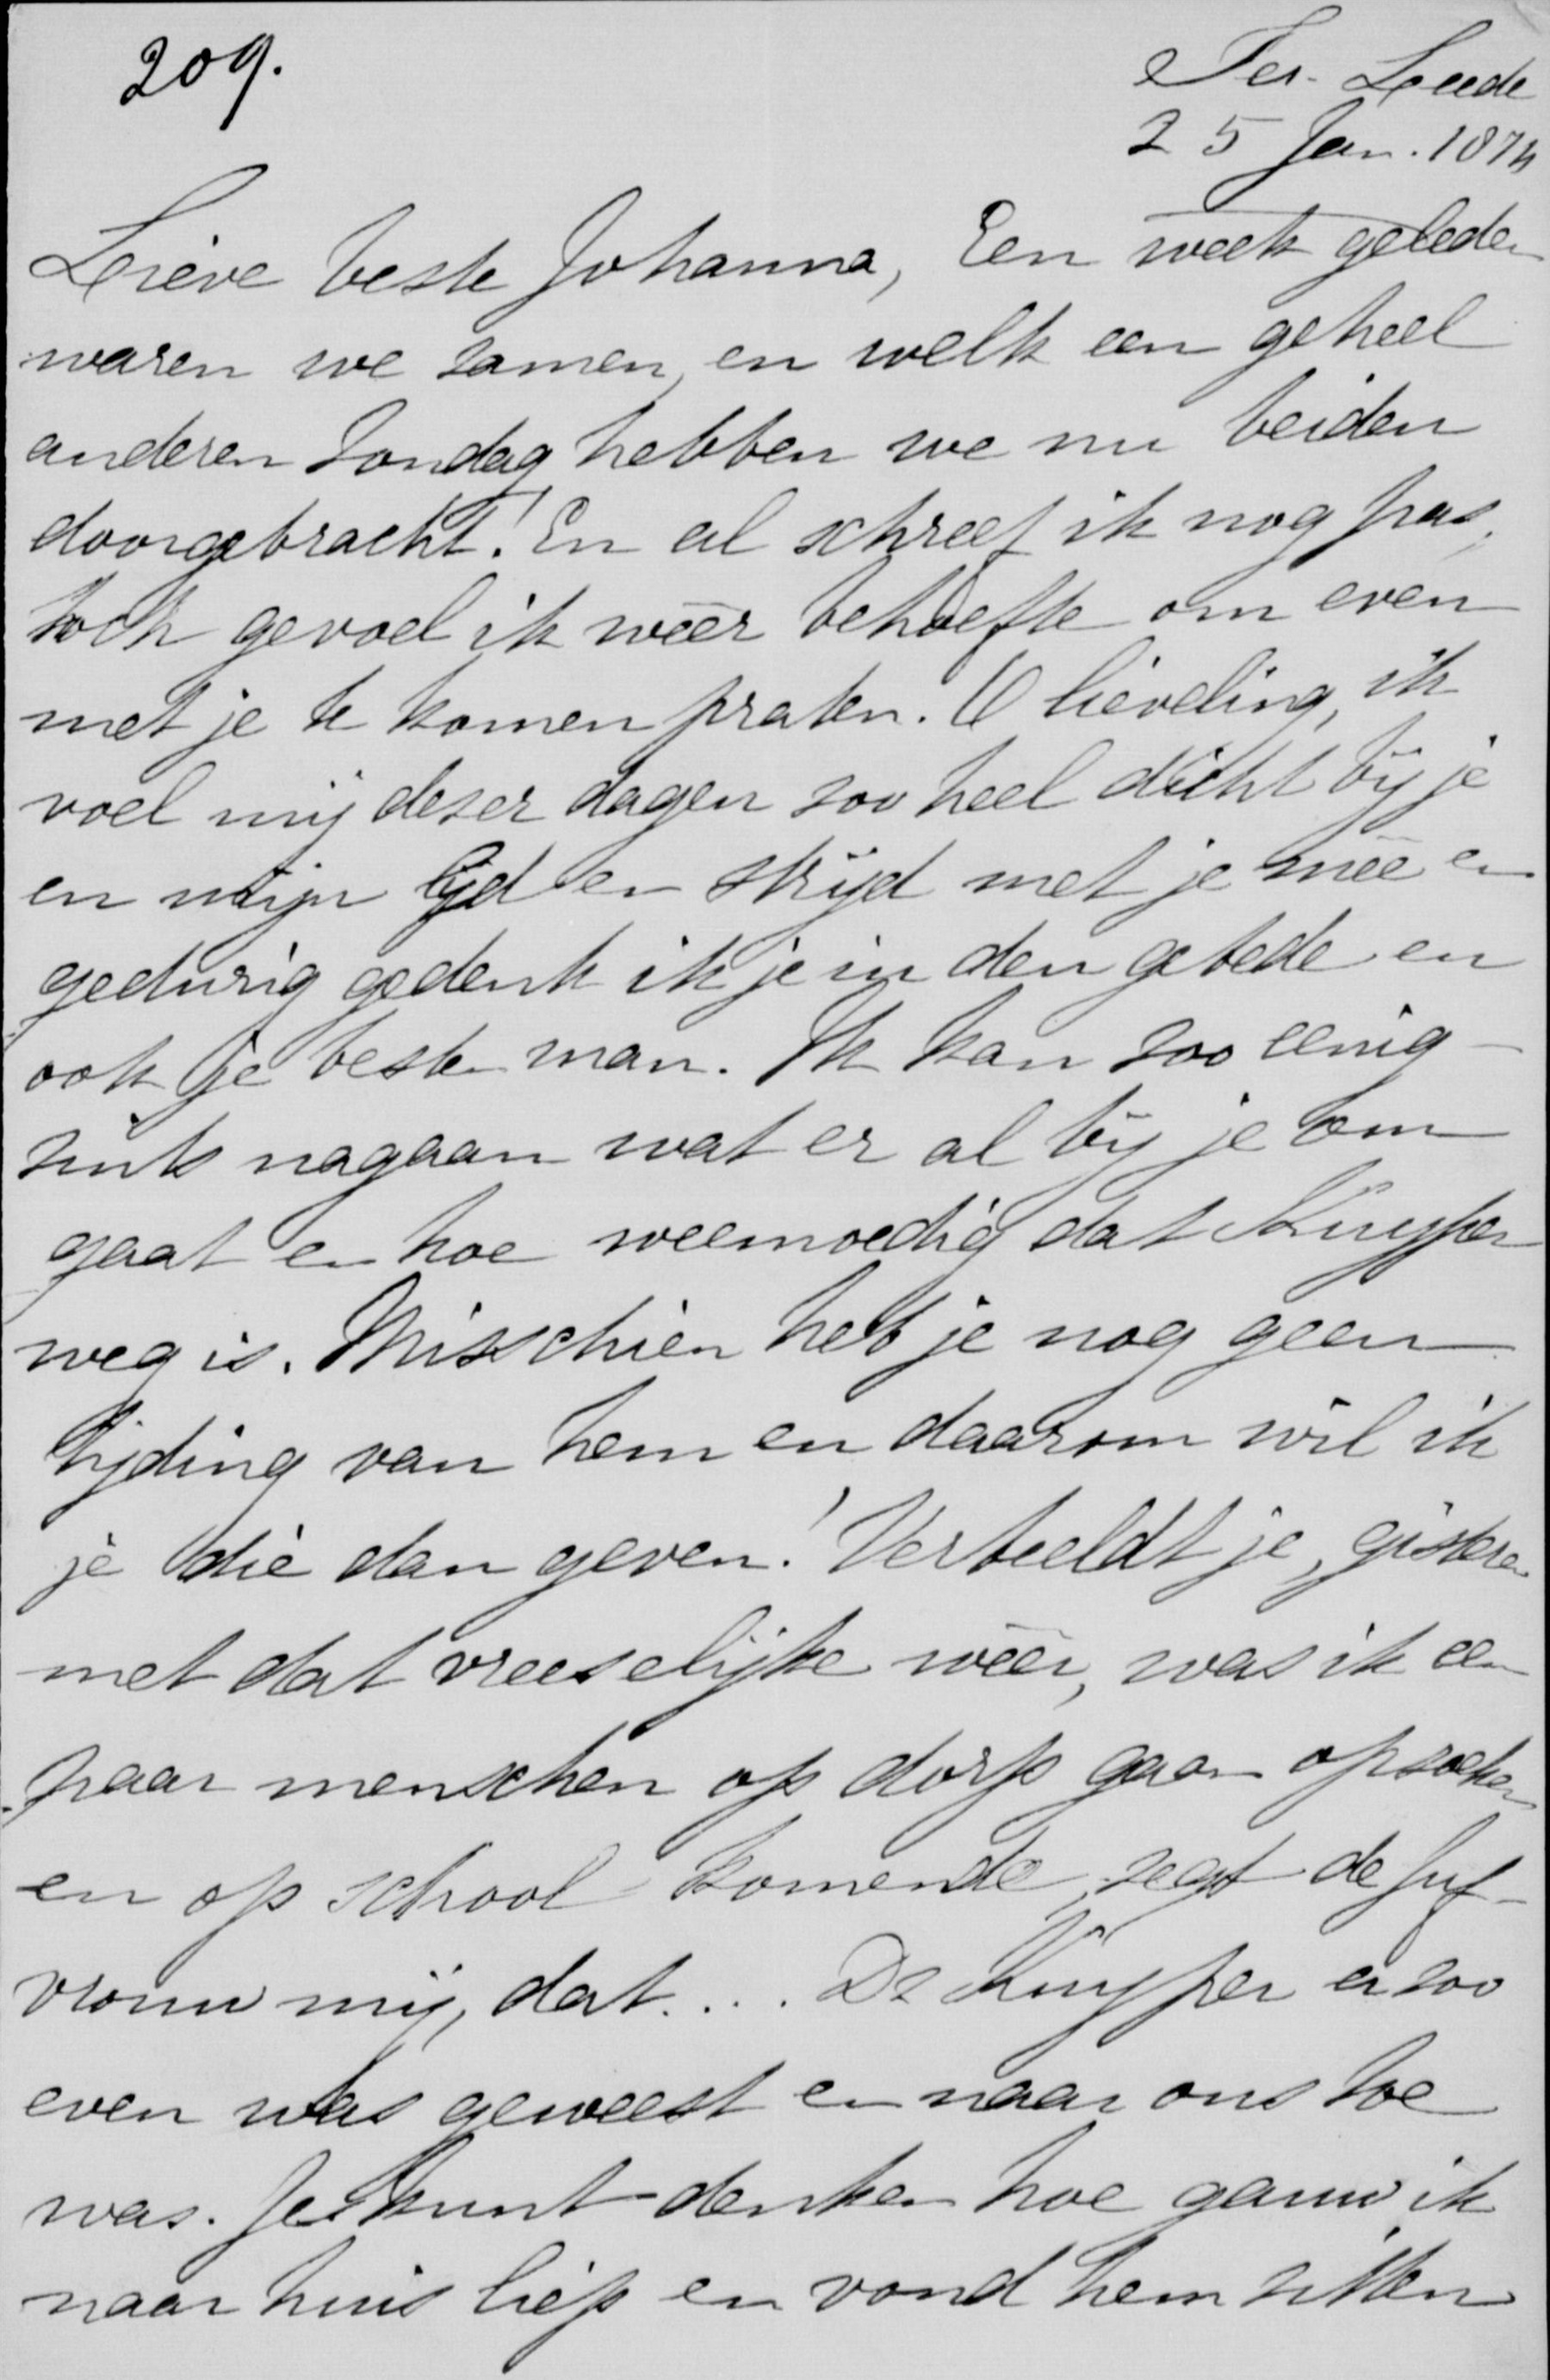 209.
Ter-Leede
25 Jan. 1874
Lieve beste Johanna, Een week geleden
waren we samen, en welk een geheel
anderen Zondag hebben we nu beiden
doorgebracht! En al schreef ik nog pas,
toch gevoel ik wéér behoefte om even
met je te komen praten. O lieveling, ik
voel mij dezer dagen zoo heel dicht bij je
en mijn lijd en strijd met je mêe en
gedurig gedenk ik je in den gebede en
ook je beste man. Ik kan zoo eenig-
zints nagaan wat er al bij je om
gaat en hoe weemoedig dat Kuyper
weg is. Misschien heb je nog geen
tijding van hem en daarom wil ik
je die dan geven! Verbeeldt je, gisteren
met dat vreeselijke wéér, was ik een
paar menschen op dorp gaan opzoeken
en op school komende, zegt de Juf-
vrouw mij, dat.... Ds Kuyper er zoo
even was geweest en naar ons toe
was. Je kunt denken hoe gauw ik
naar huis liep en vond hem zitten